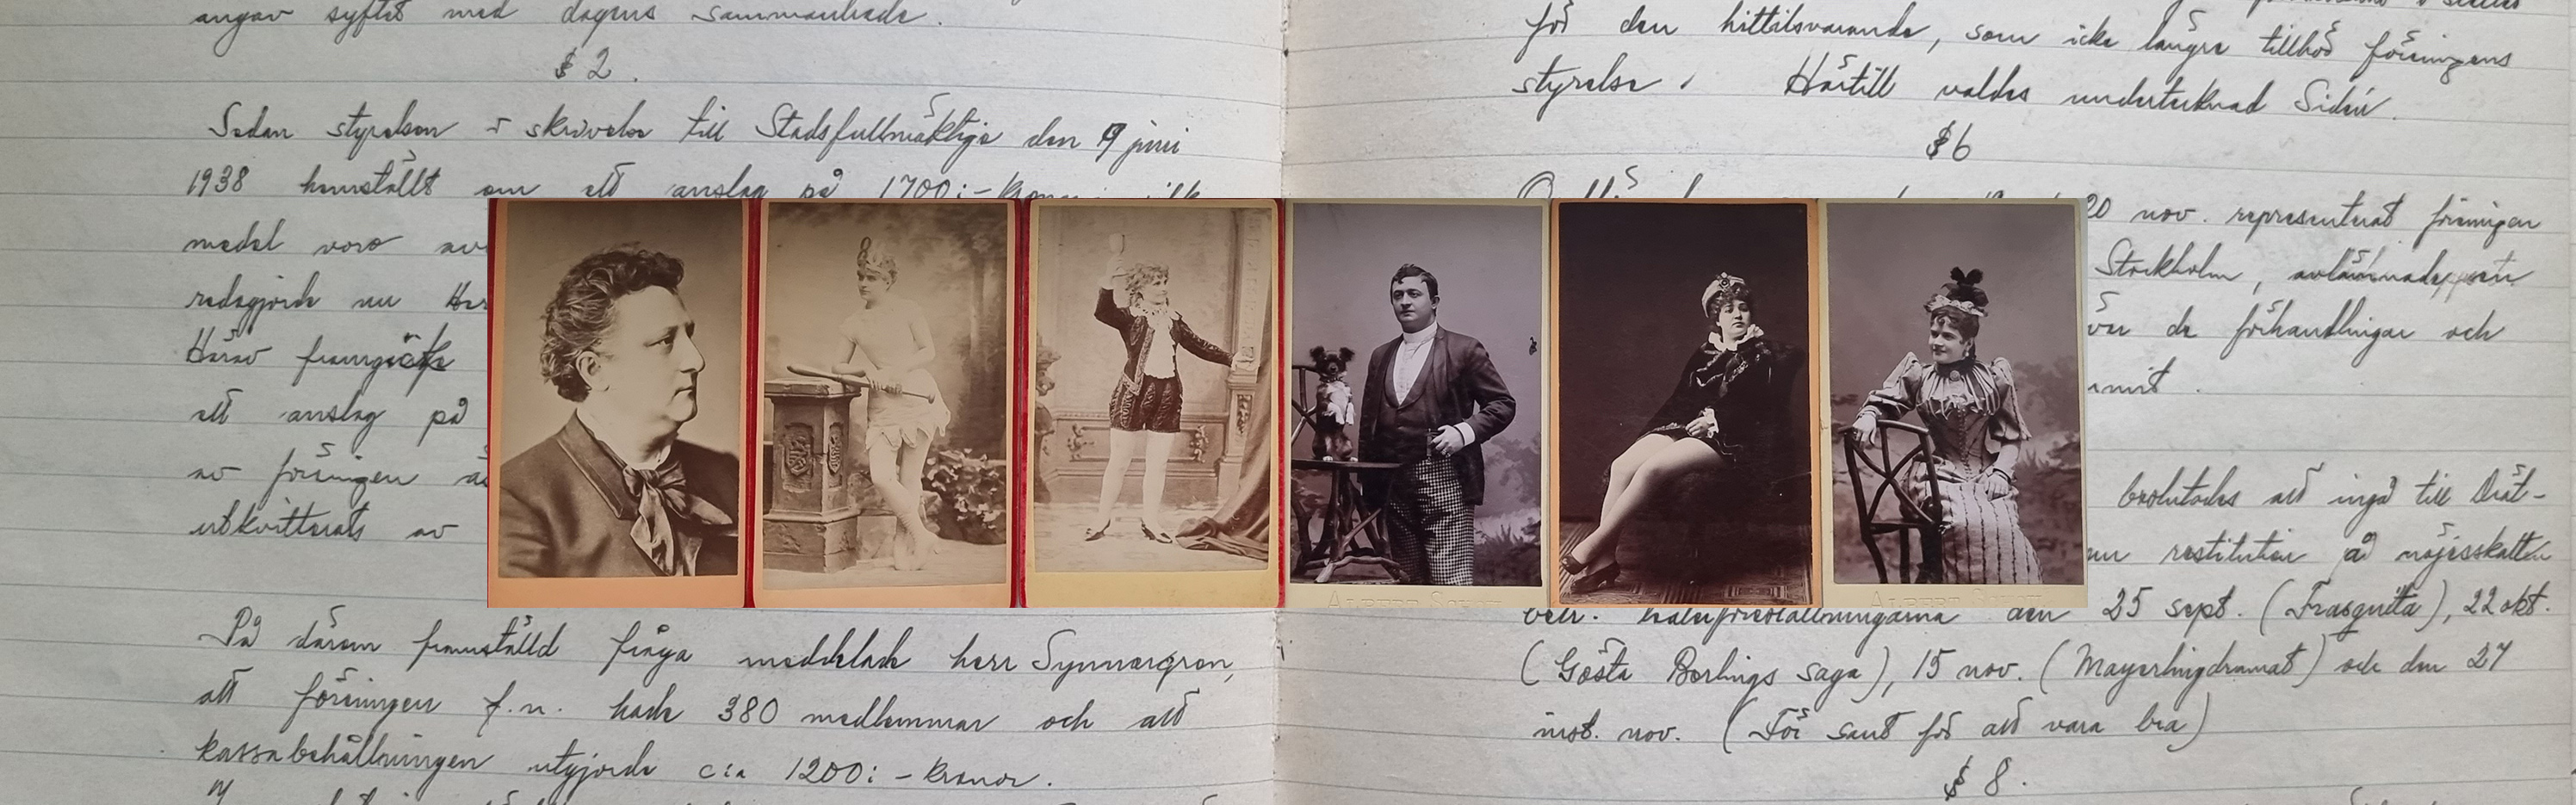 angav syftet med dagens sammanträde.
§ 2.
Sedan styrelsen i skrivelse till Stadsfullmäktige den 9 juni
1938 hemställt om ett anslag på 1700:- kronor
medel voro
redogjorde nu
Härav framgick
ett anslag på
av föreningen
utkvitterats av
På därom framställd fråga meddelade herr Synnergren,
att föreningen f.n. hade 380 medlemmar och att
kassabehållningen utgjorde c:a 1200:- kronor.
för den hittillsvarande, som icke längre tillhör föreningens
styrelse. Härtill valdes undertecknad Sidén.
§ 6
20 nov. representerat föreningen
Stockholm,
över de förhandlingar och
beslutades att ingå till Drät-
om restitution å nöjesskatten
den 25 sept. (Frasquita), 22 okt.
(Gösta Berlings saga), 15 nov. (Mayerlingdramat) och den 27
inst. nov. (För sant för att vara bra)
§ 8.